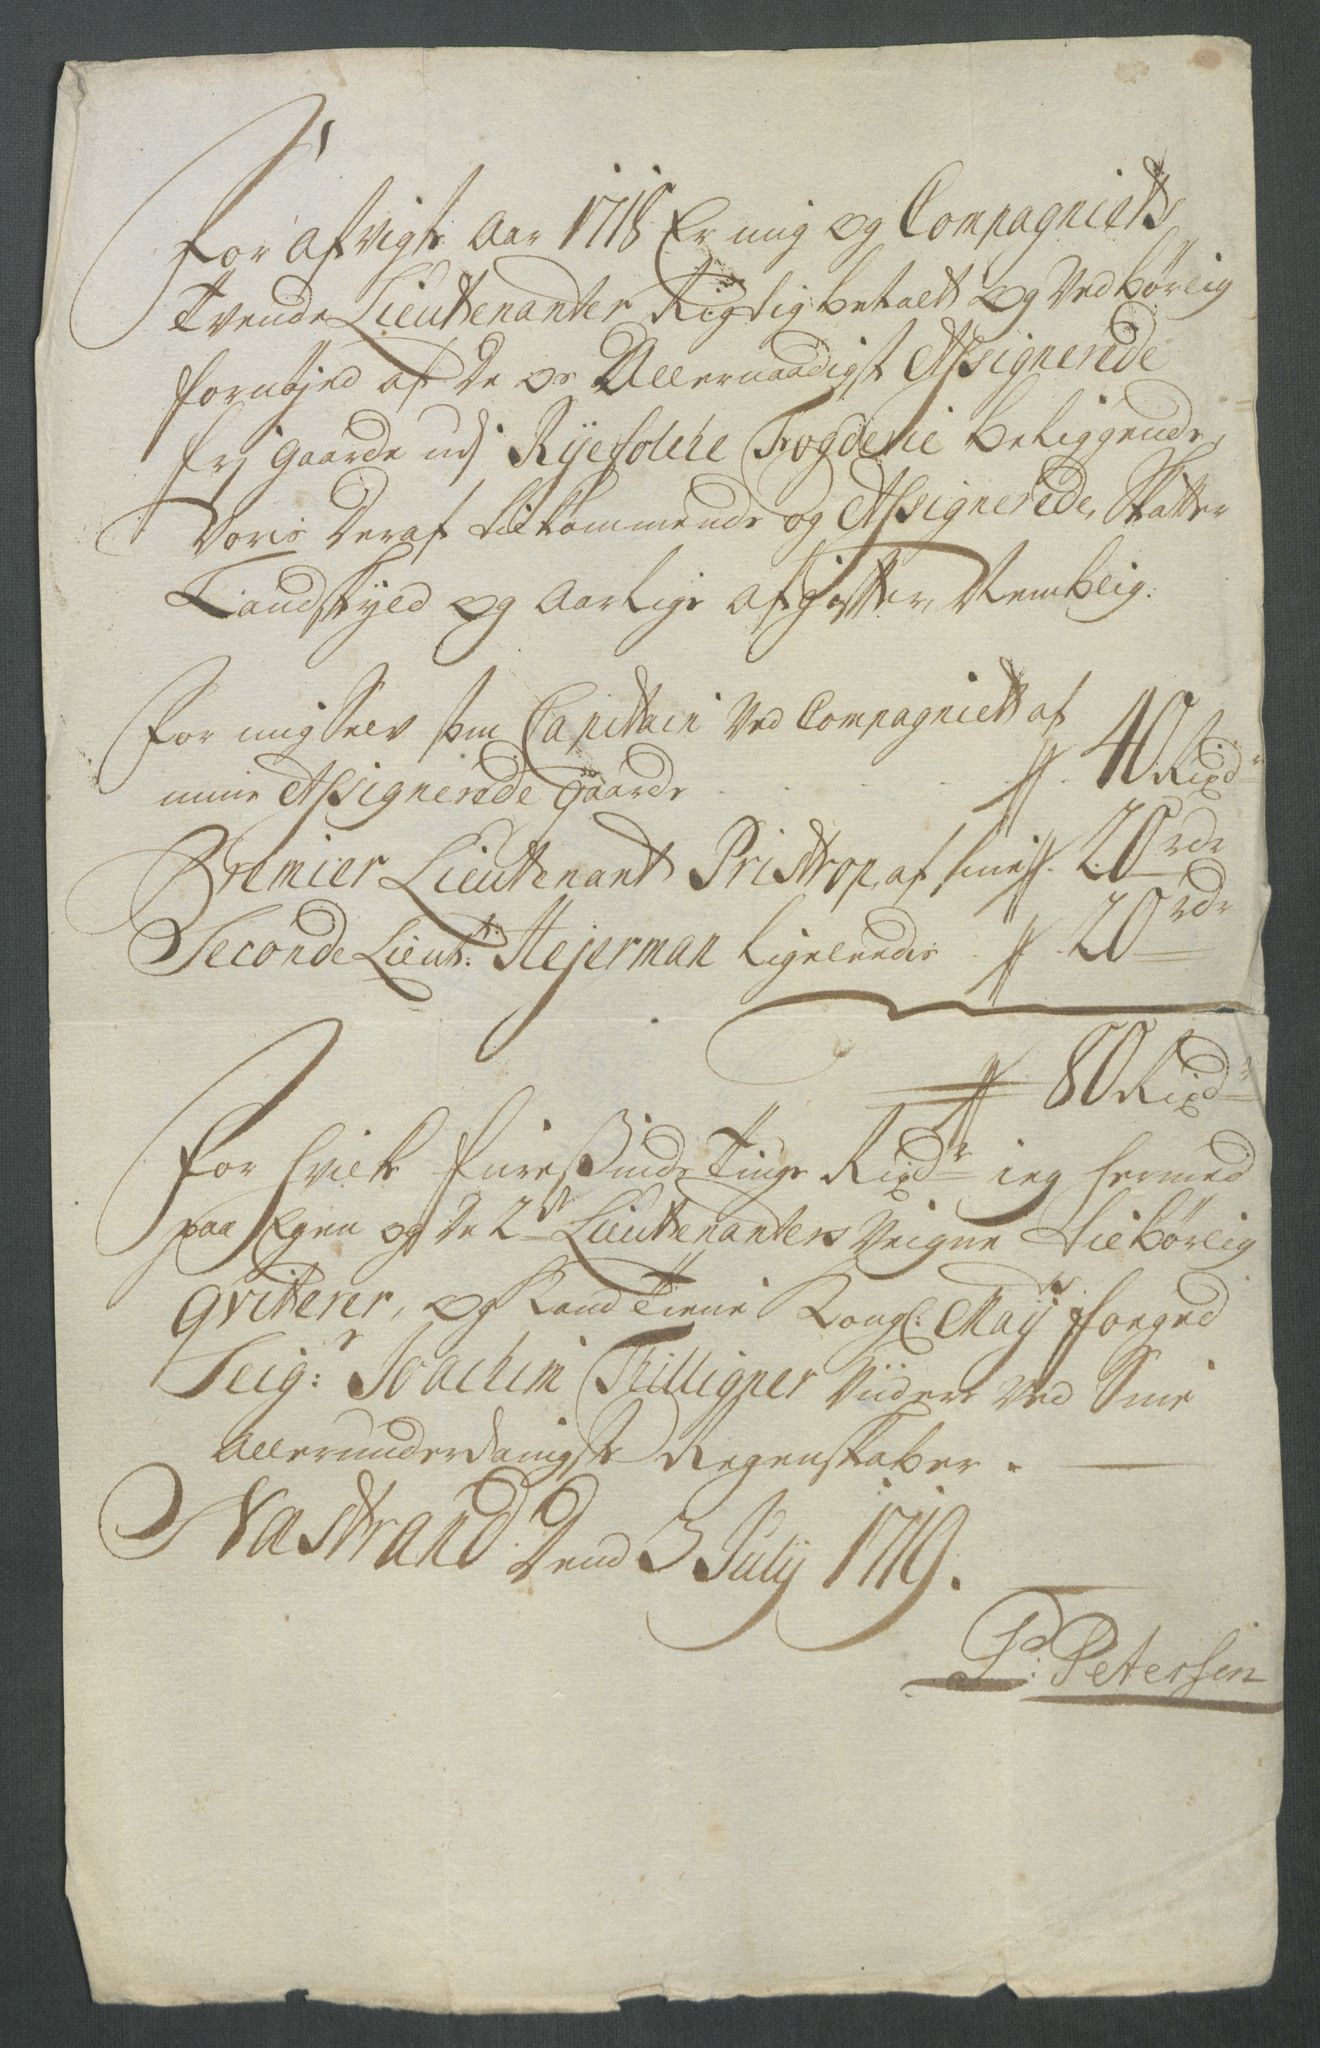 For Afvigte Aar 1718 Er mig og Compagniets
Tvende Lieutenanter Rigtig betalt og Vedbørlig
fornøjed af de os Allernaadigst Assignerede
frj gaarde udj Ryefolche Fogderie beliggende,
Voris deraf tilkommende og Assignerede, Skatter
Landskyld og Aarlige Afgifter, Nemblig:
For mig Selv som Capitain Ved Compagniet af
mine Assignerede gaarde 40 Rixdr
Premier Lieutenant Pristrop, af sine 20 rdr
Seconde Lieut: Heyerman ligeleedes 20 rdr
80 Rixdr
For hvilke fiiresindstiuge Rixdr ieg hermed
paa Egen og de 2de Lieutenanters Veigne tilbørlig
Qviterer, og kand tiene Kongl: Mayts foeged
Seigr: Joachim Thilligner Viidere Ved Sine
Allerunderdanigste Regenskaber.
Nastrand Dend 3 July 1719.
P: Petersen